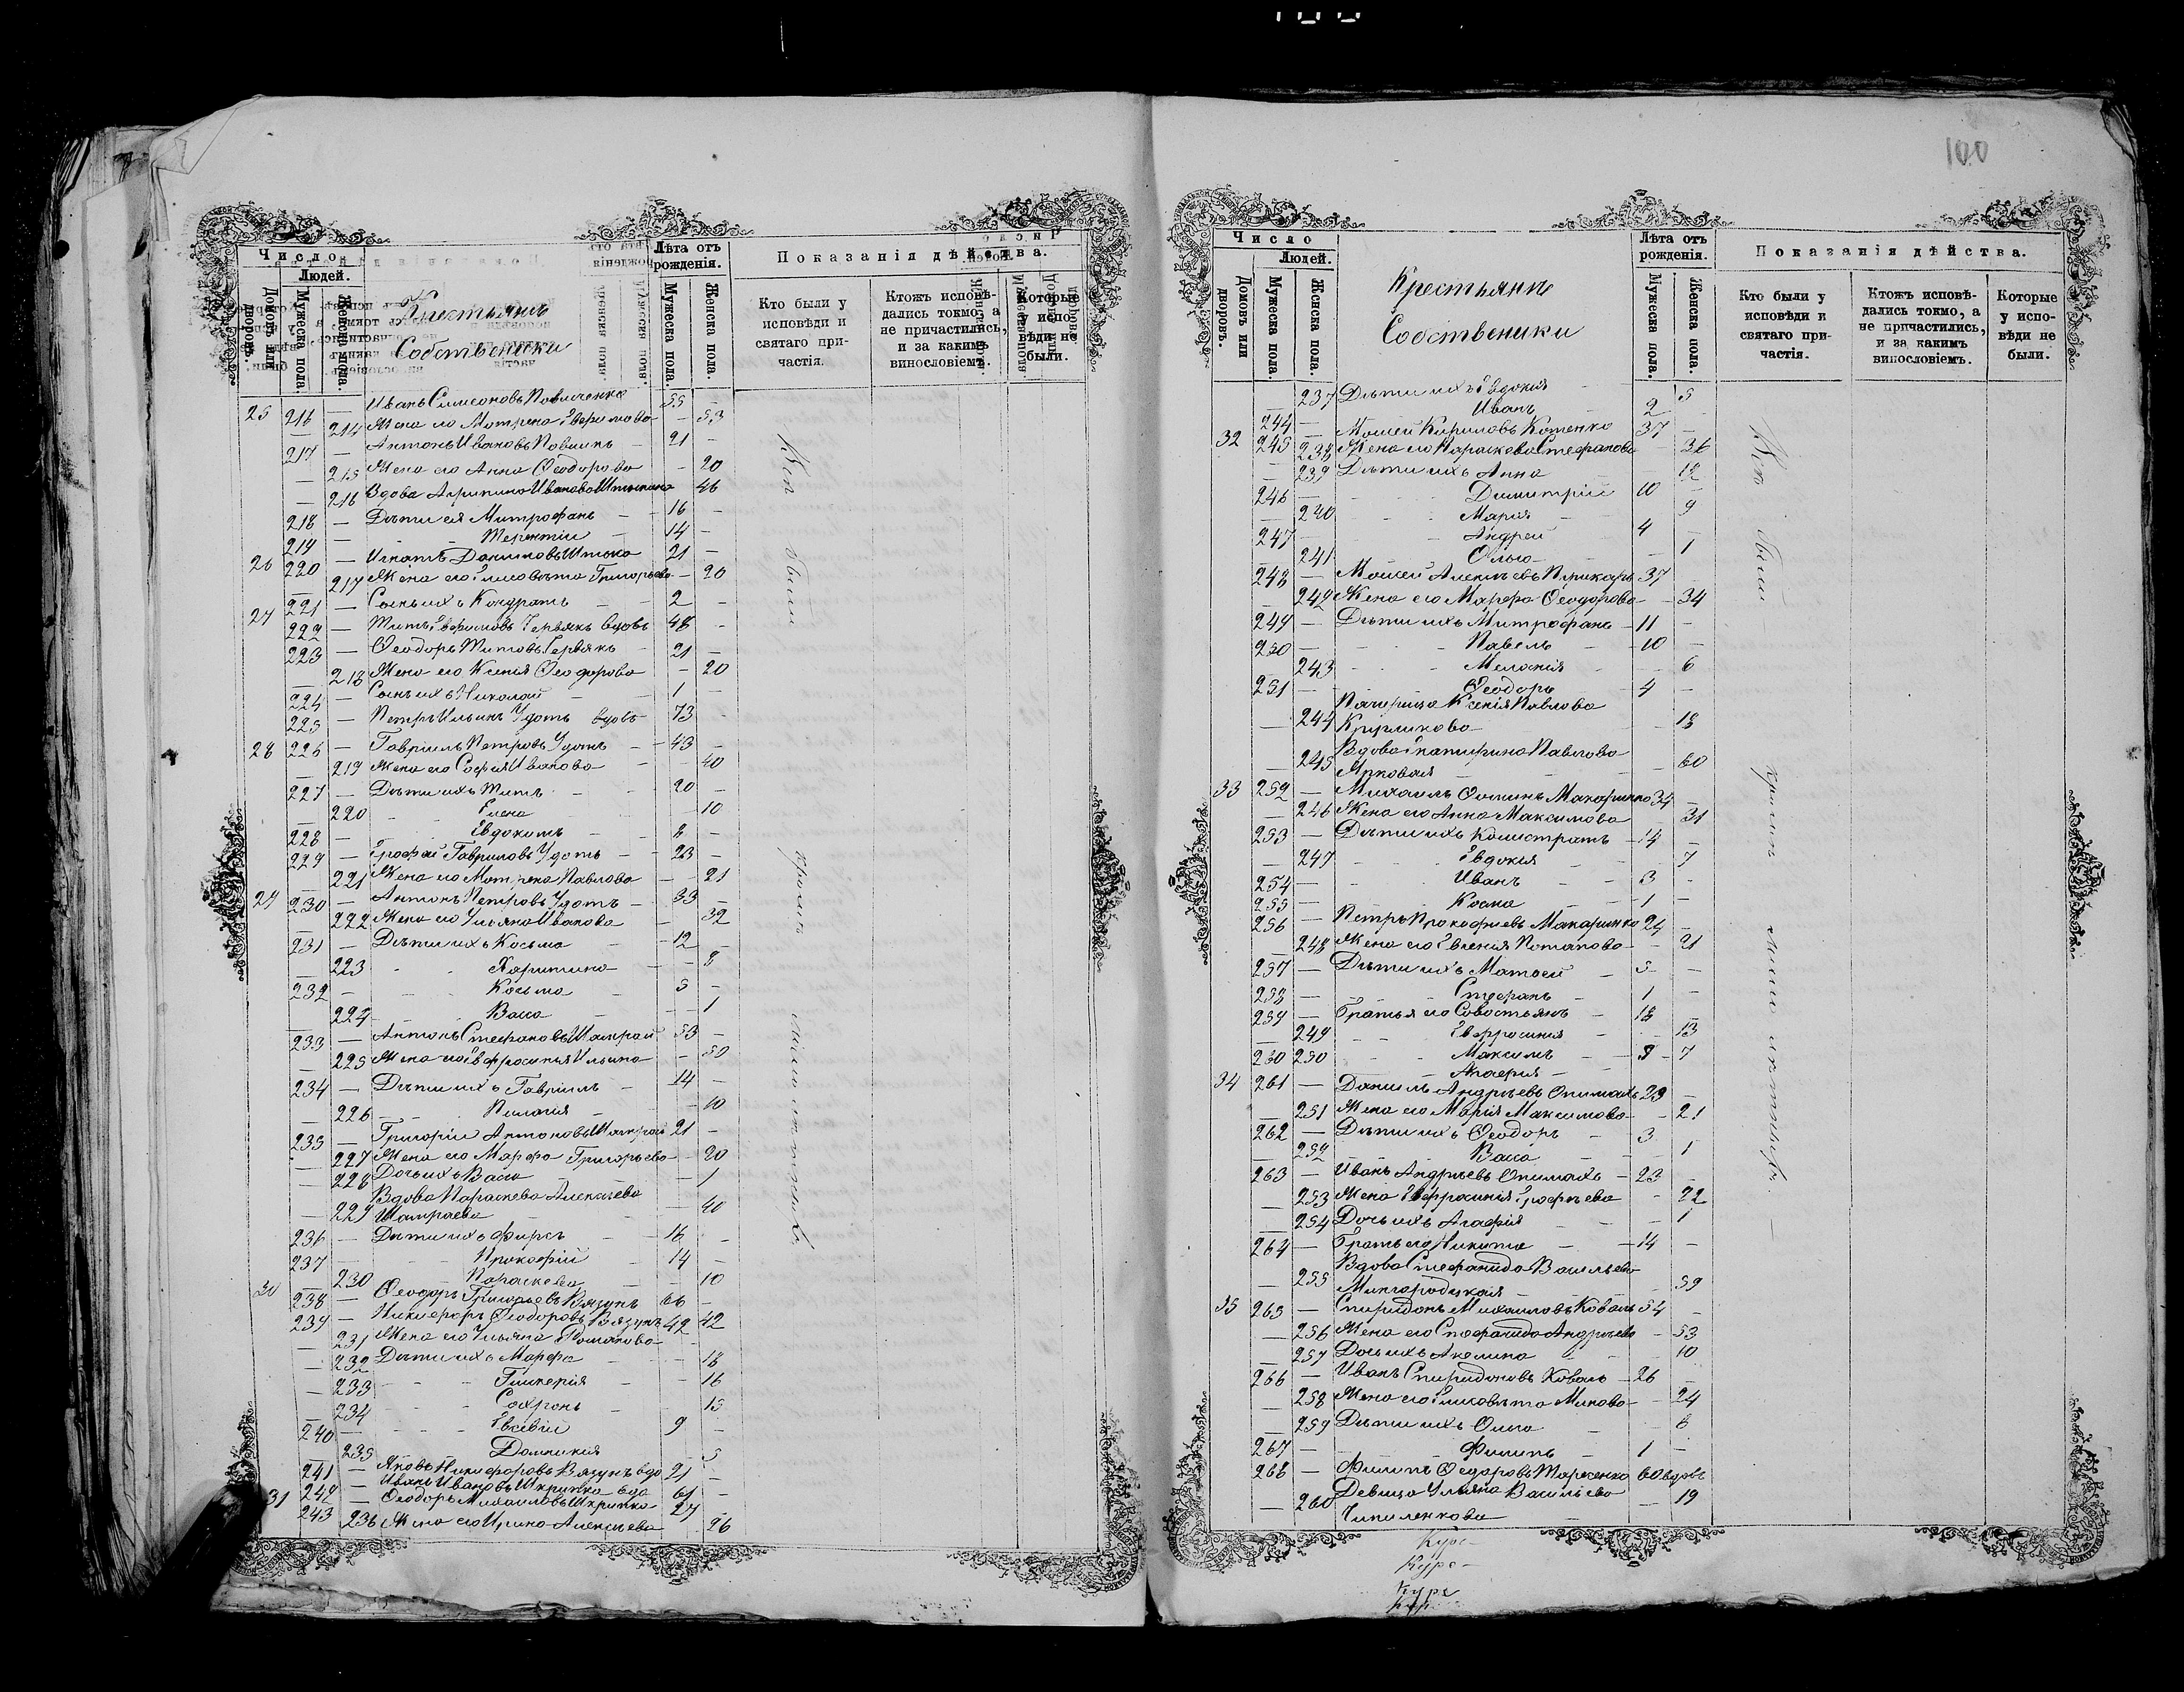 100
Число
Людей.
Домовъ или дворовъ.
Мужеска пола.
Женска пола.
Крестьяне
Собственики
Лѣта отъ рожденія.
Мужеска пола.
Женска пола.
Показанія дѣйства.
Кто были у исповѣди и святаго причастія.
Ктожъ исповѣдались токмо, а не причастились, и за какимъ винословіемъ.
Которые у исповѣди не были.
25 216 — Иванъ Симеоновъ 55 —
— 214 Жена его Мотрена — 53
217 — Антонъ Ивановъ 21 —
— 215 Жена его Анна Ѳеодорова — 20
— 216 Вдова Агрипина Иванова — 46
218 — Дѣти ея Митрофанъ — 16 —
219 — Терентій — 14 —
26 220 — Игнатъ Даниловъ 21 —
— 217 Жена его Елисавѣта Григорьева — 20
221 — Сынъ ихъ Кондратъ 2 —
27 222 — Титъ Червякъ вдовъ 48 —
223 — Ѳеодоръ Титовъ Червякъ 21 —
— 218 Жена его Ксенія Ѳеодорова — 20
224 — Сынъ ихъ Николай 1 —
225 — Петръ Ильинъ Удотъ вдовъ 73 —
28 226 — Гавріилъ Петровъ Удотъ — 43 —
— 219 Жена его Софія Иванова — 40
227 — Дѣти ихъ Титъ 20 —
— 220 Елена — 10
228 — Евдокимъ 8 —
229 — Ерофей Гавриловъ Удотъ — 23 —
— 221 Жена его Мотрена Павлова — 21
29 230 — Антонъ Петровъ Удотъ — 33 —
— 222 Жена его Ульяна Иванова — 32
231 — Дѣти ихъ Косьма — 12 —
— 223 Харитина — 8
232 — Косьма 5 —
— 224 Васса — 1
233 — Антонъ Стефановъ Шамрай 53 —
— 225 Жена его Евфросинья Ильина — 50
234 — Дѣти ихъ Гавріилъ — 14 —
— 226 Пелагія — 10
235 — Григорій Антоновъ Шамрай 21 —
— 227 Жена его Марфа Григорьева — 20
— 228 Дочь ихъ Васса — 1
Вдова Параскева Алексѣева
— 229 Шамраева — 40
236 — Дѣти ихъ Фирсъ — 16 —
237 — Прокофій 14 —
— 230 Параскева — 10
30 238 — Ѳеодоръ Григорьевъ Вязунъ 66 —
239 — Никифоръ Ѳеодоровъ Вязунъ 42 42
— 231 Жена его Ульяна Романова
— 232 Дѣти ихъ Марфа — 18
— 233 Гликерія — 16
— 234 — 15
240 — Евсевій 9 —
235 Домникія — 5
241 — Яковъ Никифоровъ Вязунъ вдо 21 —
242 — Иванъ Ивановъ Шкрипка вдо 61 —
31 243 — Ѳеодоръ Михаиловъ Шкрипка 27 —
236 Жена его Ирина Алексѣева 26
Всѣ были кромѣ
Число
Людей.
Домовъ или дворовъ.
Мужеска пола.
Женска пола.
Крестьяне
Собственики
Лѣта отъ рожденія.
Мужеска пола.
Женска пола.
Показанія дѣйства.
Кто были у исповѣди и святаго причастія.
Ктожъ исповѣдались токмо, а не причастились, и за какимъ винословіемъ.
Которые у исповѣди не были.
237 Дѣти ихъ Евдокія — 5
244 — Иванъ 2 —
32 245 — Моисей Кириловъ Котенко 37 —
— 238 Жена его Параскева Стефанова — 36
— 239 Дѣти ихъ Анна — 12
246 — Димитрій 10 —
— 240 Марія — 9
247 — Андрей 4
241 Ольга — 1
248 — Моисей Алексѣевъ 37
— 242 Жена его Марфа Ѳеодорова — 34
249 — Дѣти ихъ Митрофанъ — 11 —
250 — Павелъ — 10 —
243 Меланія — 6
251 — Ѳеодоръ 4 —
Ксенія Павлова
— 244 — 18
Вдова Екатирина Павлова
— 245 — 60
33 252 — Михаилъ Макаринко 34 —
— 246 Жена его Анна Максимова 31
253 — Дѣти ихъ Калистратъ — 14 —
— 247 Евдокія — 7
254 — Иванъ — 3 —
255 — Косма — 1 —
256 — Петръ Прокофиевъ Макаринко 24 —
— 248 Жена его Евгенія Потапова — 21
257 — Дѣти ихъ Матвей — 5 —
258 — Стефанъ 1 —
259 — Братья его Савостьянъ — 18 —
249 Евфросинія — 13
250 250 Максимъ — 9 — 7
Агафія
34 261 — Даниилъ Андрѣевъ 23 —
— 251 Жена его Марія Максимова — 21
262 — Дѣти ихъ Ѳеодоръ 3 —
252 Васса — 1
263 — Иванъ Андрѣевъ — 23 —
253 Жена Евфросинія Ерофѣева — 22
254 Дочь ихъ Агафія — 1
264 — Братъ его Никита — 14 —
Вдова Стефанида Васильева
— 255 Миргородцкая — 59
35 265 — Спиридонъ Михаиловъ Коваль 54 —
— 256 Жена его Стефанида Андрѣева — 53
257 Дочь ихъ Акелина 10
266 — Иванъ Спиридоновъ Коваль — 26 —
258 Жена его Елисавѣта — 24
— 259 Дѣти ихъ Ольга — 6
267 — Филипъ — 1 —
268 — Филипъ Ѳедоровъ 60 вдовъ
Девица Ульяна Васильева
— 260 Чипиленкова — 19
Всѣ были кромѣ
Курс
Курс
Курс
Кур